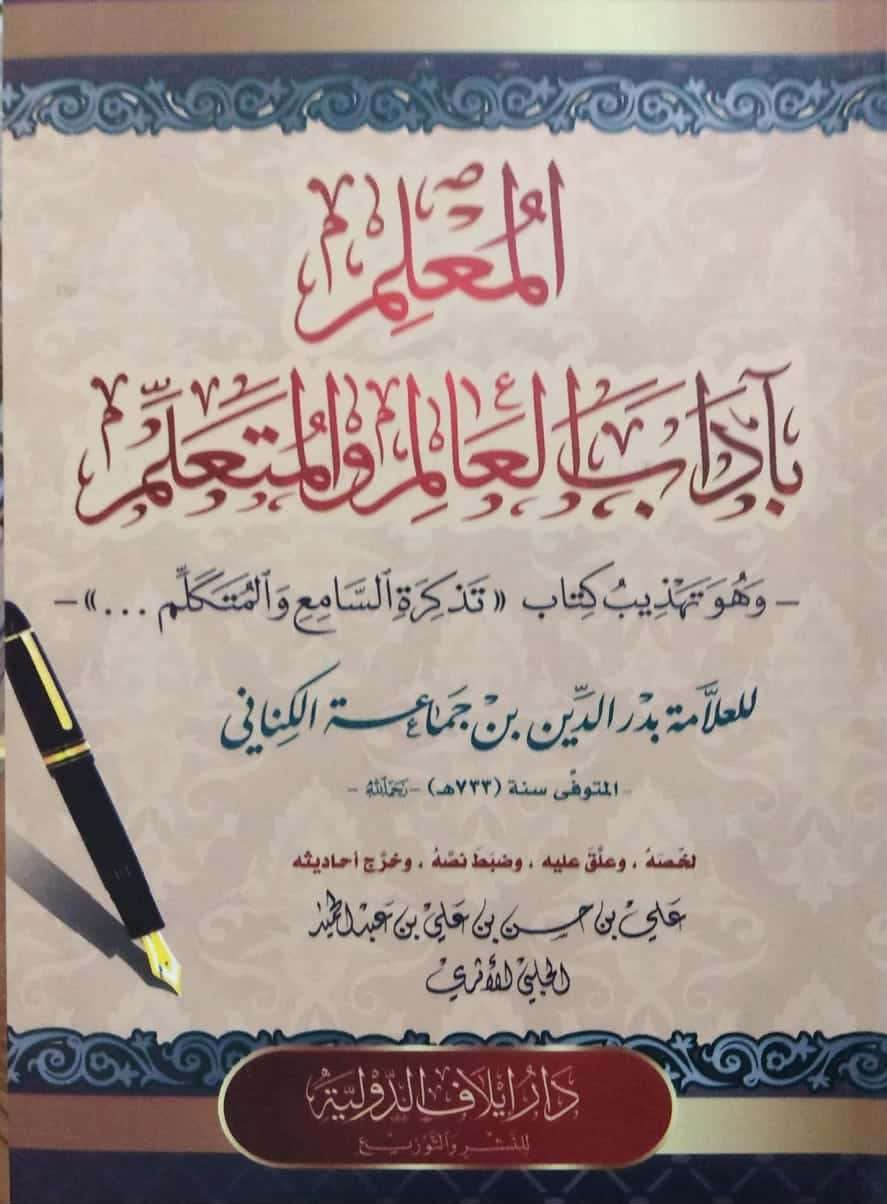 المُعْلِم
بآدَابِ العَالِمِ وَالمُتَعَلِّمِ
- وَهُوَ تَهْذِيبُ كِتَاب «تَذْكِرَةِ السَّامِعِ وَالمُتَكَلِّمِ ...» -
للعلَّامة بدْر الدِّين بنْ جَمَاعة الكِناني
- المتوفَّى سنة (٧٣٣هـ) - رَحِمَهُ اللهُ -
لخَّصَهُ ، وعلَّقَ عليه ، وضبَطَ نصَّهُ ، وخرَّج أحاديثه
عَلِيّ بن حسن بن عَلِيّ بن عَبد الحميد
الحلبيّ الأثريّ
دَارُ إيلَاف الدَّوْليَّة
للنَّشْرِ وَالتَّوْزِيع